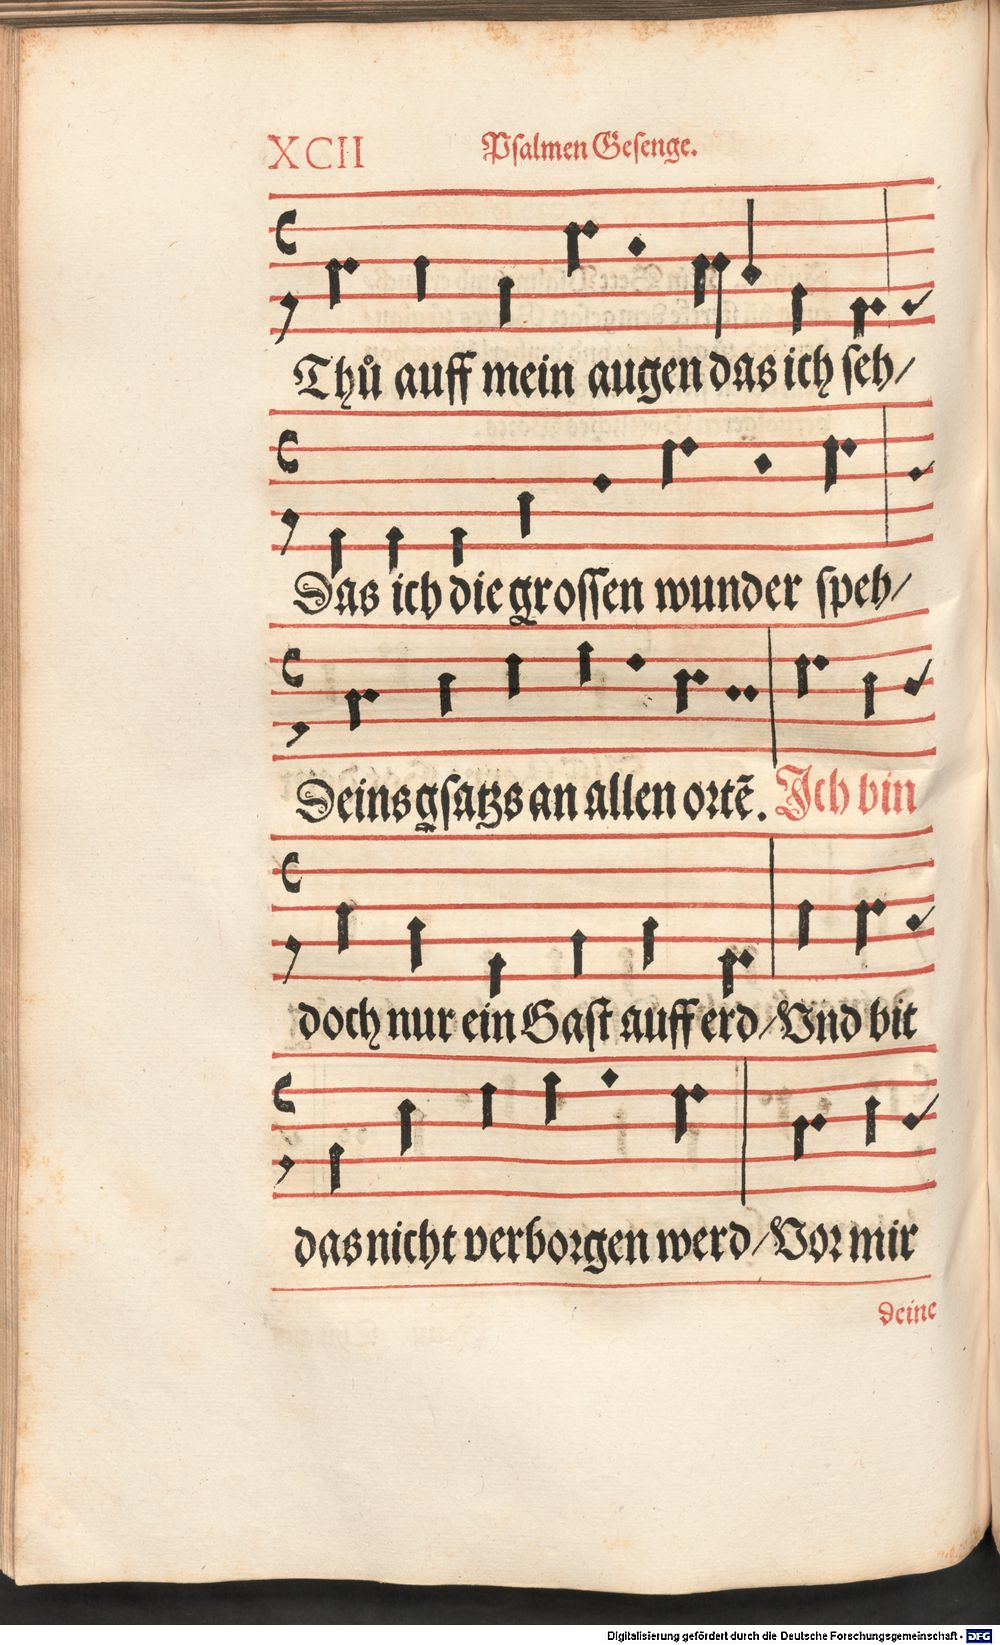 XCII
Psalmen Gesenge.
Thů auff mein augen das ich seh/
Das ich die grossen wunder speh/
Deins gsatzs an allen ortẽ. Ich bin
doch nur ein Gast auff erd/Vnd bit
das nicht verborgen werd/Vor mir
deine
Digitalisierung gefördert durch die Deutsche Forschungsgemeinschaft - DFG